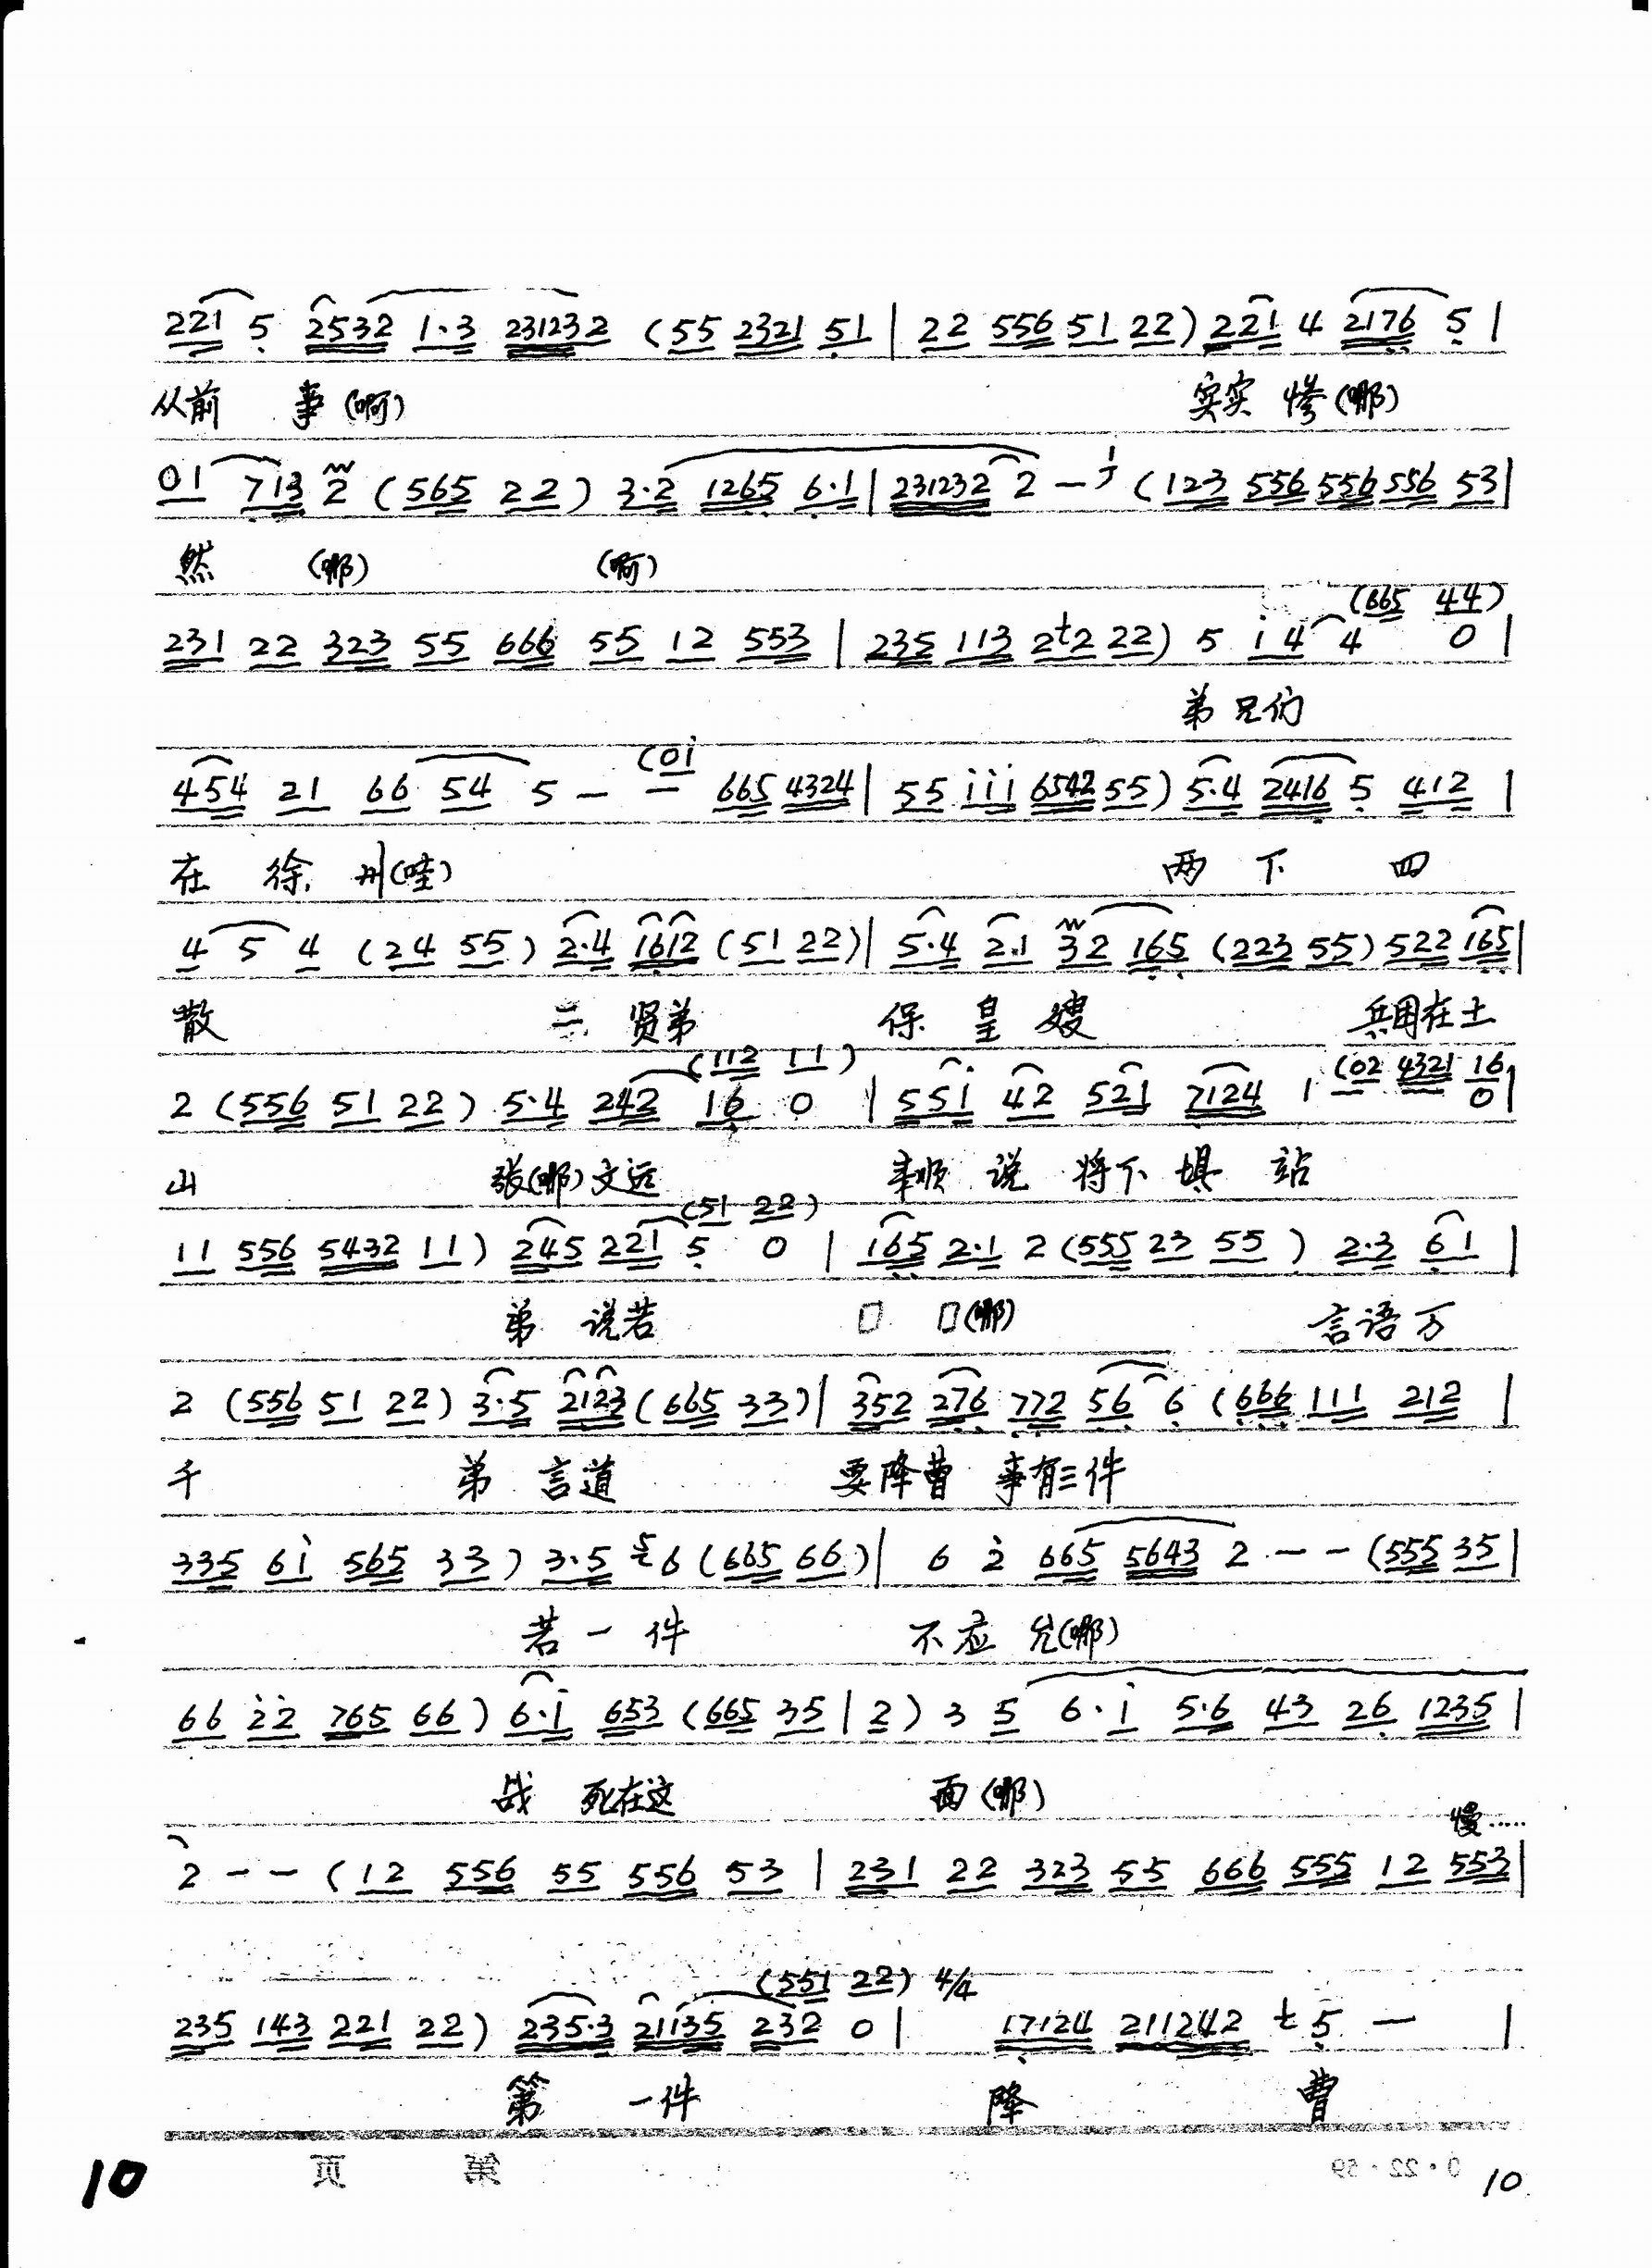 221 5 2532 1·3 231232 (55 2321 51 | 22 556 51 22) 221 4 2176 5 |
从前 事(啊) 实实 惨(哪)
01 713 2 (565 22) 3·2 1265 6·1 | 231232 2 — (123 556 556 556 53 |
然 (哪) (啊)
(665 44)
231 22 323 55 666 55 12 553 | 235 113 2 2 22) 5 i4 4 0 |
弟兄们
(0i
454 21 66 54 5 — — 665 4324 | 55 iii 6542 55) 5·4 2416 5 412 |
在 徐 州(哇) 两 下 四
4 5 4 (24 55) 2·4 1612 (51 22) | 5·4 2·1 32 165 (223 55) 522 165 |
散 二 贤弟 保 皇 嫂 兵困在土
(112 11) (02 4321 16
2 (556 51 22) 5·4 242 16 0 | 551 42 521 7124 1 0 |
山 张(哪)文远 说 将下 站
(51 22)
11 556 5432 11) 245 221 5 0 | 165 2·1 2 (555 23 55) 2·3 61 |
弟 说若 □ □(哪) 言语万
2 (556 51 22) 3·5 2123 (665 33) | 352 276 772 56 6 (666 111 212 |
千 弟 言道 要降曹 事有三件
335 6i 565 33) 3·5 6 (665 66) | 6 2 665 5643 2 — — (555 35 |
若一件 不应 允(哪)
66 22 765 66) 6·i 653 (665 35 | 2) 3 5 6·i 5·6 43 26 1235 |
战 死在这 面(哪)
慢……
2 — — (12 556 55 556 53 | 231 22 323 55 666 555 12 553 |
(551 22) 4/4
235 143 221 22) 235·3 21135 232 0 | 17124 211242 5 — |
第 一件 降 曹
10 页 第 0·22·59 10